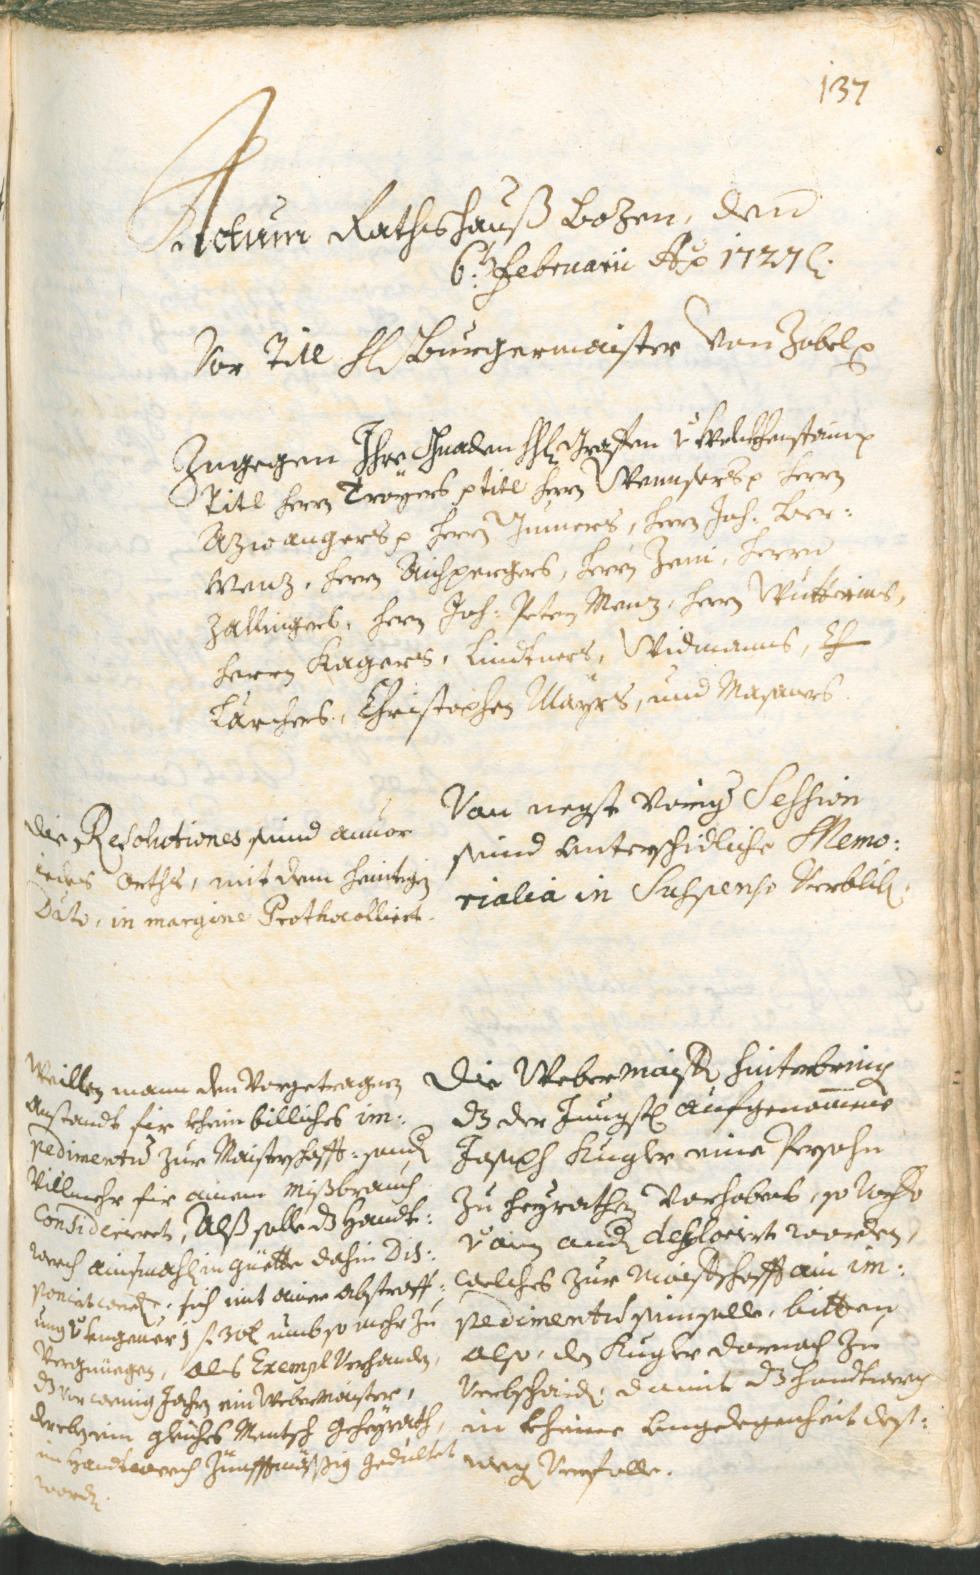 137
Actum Rathshauß Bozen, den
6: Februarii Ao 1727
Vor Titl H Burgermaister Von Zobel p
Zugegen Ihre Gnaden
Titl herrn Troyers p titl herrn Wennsers p herrn
Azwangers p herrn Gumers, herrn Joh: Lor:
Menz, herrn Aichpergers, herrn Zeni, herrn
Zallingers, herrn Joh: Peter Menz, herrn Wütterins,
herrn Kagers, Lindtners, Widmanns,
Larchers, Christophen Mayrs, und Masaners
Die Resolutiones seind anvor
iedes orths, mit dem heintigen
Dato, in margine Prothocolliert.
Von negst vorig Session
seind unterschidliche Memo:
rialia in Suspenso verblib.
Weillen mann den Vorgetragnen
anstandt für khein billiches im:
pedimentum zur Maisterschafft: sond
Villmehr für ainem mißbrauch
Consideriert, Alß solle dz Handt:
werch ainsmahl in güette dahin Dis:
poniert werden, sich mit ainer abstraff:
ung fl 30 umb so mehr zu
Vergnüegen, als Exempl Verhanden,
dz vor wenig Jahrn ein Webermaister,
der ein gleiches Mentsch geheyrath,
im Handtwerch Zunfftmässig gedultet
word.
Die Webermaister hinterbring
dz der Jüngst aufgenommene
Joseph Kugler eine Persohn
zu heyrathen Vorhabens, so
v. ain andern defloriert worden,
welches zur Maisterschafft ain im:
pedimentum sein solle, bitten
also, den Kugler darnach zu
Verbschaiden, damit dz Handtwerch
in kheine Ungelegenheit dest:
weg Verfalle.